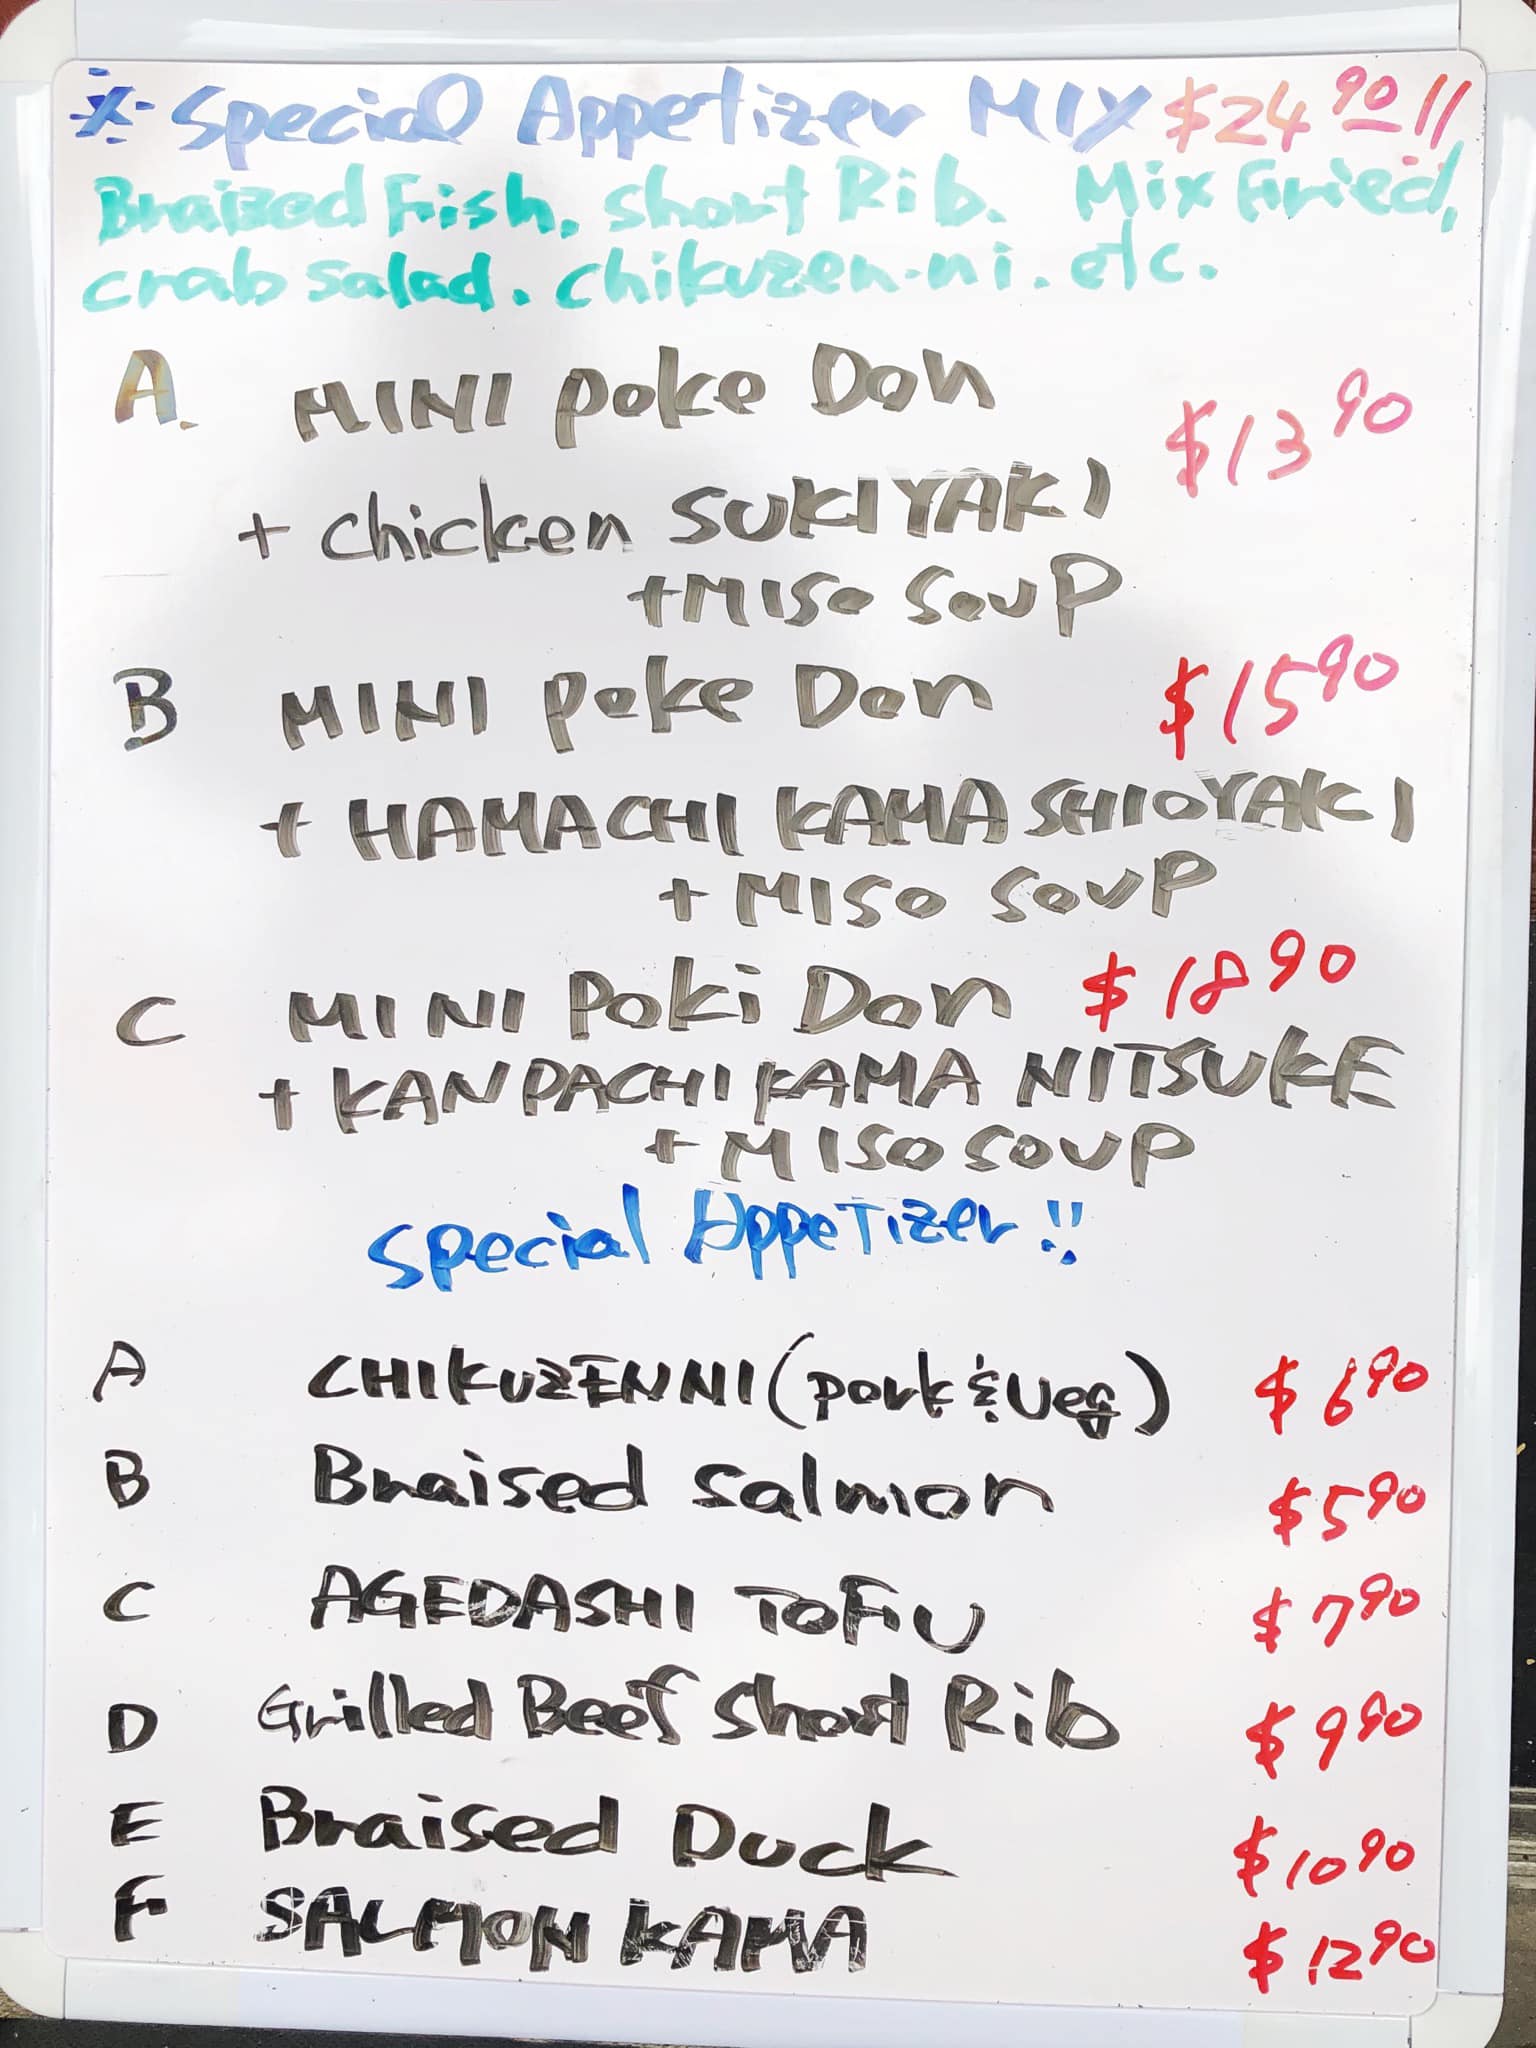 ※ Special Appetizer MIX $24 90 !!
Braized Fish. Short Rib. Mix Fried,
crab salad. chikuzen-ni. etc.
A. MINI poke Don $13 90
+ chicken SUKIYAKI
+MISO SOUP
B MINI poke Don $15 90
+ HAMACHI KAMA SHIOYAKI
+ MISO SOUP
C MINI Poki Don $18 90
+ KANPACHI KAMA NITSUKE
+ MISO SOUP
Special AppeTizer!!
A CHIKUZENNI (pork & veg) $6 90
B Braised salmon $5 90
C AGEDASHI TOFU $7 90
D Grilled Beef Short Rib $9 90
E Braised Duck $10 90
F SALMON KAMA $12 90